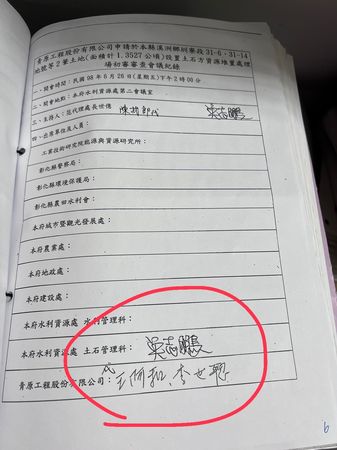 青原工程股份有限公司申請於本縣溪洲鄉圳寮段31-6、31-14
地號等2筆土地(面積計1.3527公頃)設置土石方資源堆置處理
場初審審查會議紀錄
一、開會時間：民國98年6月26日(星期五)下午2時00分
二、開會地點：本府水利資源處第二會議室
三、主持人：范代理處長世億 代 吳志鵬
四、出席單位及人員：
工業技術研究院能源與資源研究所：
彰化縣警察局：
彰化縣環境保護局：
彰化縣農田水利會：
本府城市暨觀光發展處：
本府農業處：
本府地政處：
本府建設處：
本府水利資源處 水利管理科：
本府水利資源處 土石管理科： 吳志鵬
青原工程股份有限公司：
6